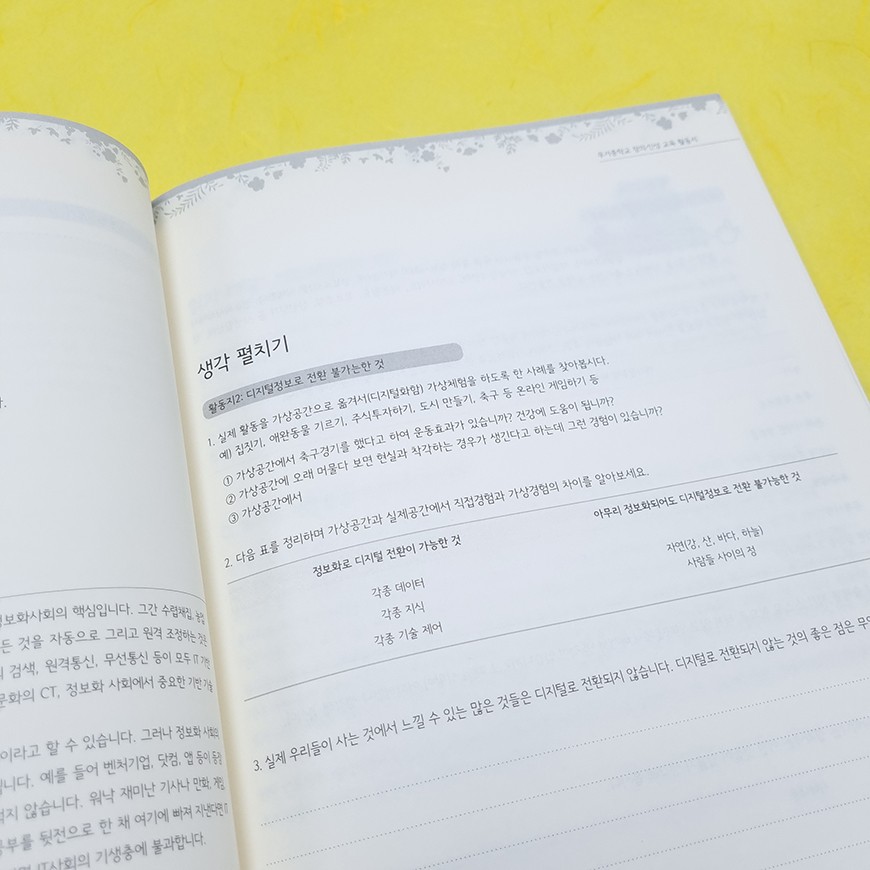 다.
정보화사회의 핵심입니다. 그간 수렵채집, 농업
든 것을 자동으로 그리고 원격 조정하는 것은
의 검색, 원격통신, 무선통신 등이 모두 IT 기반
문화의 CT, 정보화 사회에서 중요한 기반 기술
이라고 할 수 있습니다. 그러나 정보화 사회의
니다. 예를 들어 벤처기업, 닷컴, 앱 등이 등장
적지 않습니다. 워낙 재미난 기사나 만화, 게임,
공부를 뒷전으로 한 채 여기에 빠져 지낸다면 IT
IT사회의 기생충에 불과합니다.
교육 활동서
생각 펼치기
활동지2: 디지털정보로 전환 불가능한 것
1. 실제 활동을 가상공간으로 옮겨서(디지털화함) 가상체험을 하도록 한 사례를 찾아봅시다.
예) 집짓기, 애완동물 기르기, 주식투자하기, 도시 만들기, 축구 등 온라인 게임하기 등
① 가상공간에서 축구경기를 했다고 하여 운동효과가 있습니까? 건강에 도움이 됩니까?
② 가상공간에 오래 머물다 보면 현실과 착각하는 경우가 생긴다고 하는데 그런 경험이 있습니까?
③ 가상공간에서
2. 다음 표를 정리하며 가상공간과 실제공간에서 직접경험과 가상경험의 차이를 알아보세요.
정보화로 디지털 전환이 가능한 것
아무리 정보화되어도 디지털정보로 전환 불가능한 것
각종 데이터
자연(강, 산, 바다, 하늘)
각종 지식
사람들 사이의 정
각종 기술 제어
3. 실제 우리들이 사는 것에서 느낄 수 있는 많은 것들은 디지털로 전환되지 않습니다. 디지털로 전환되지 않는 것의 좋은 점은 무엇